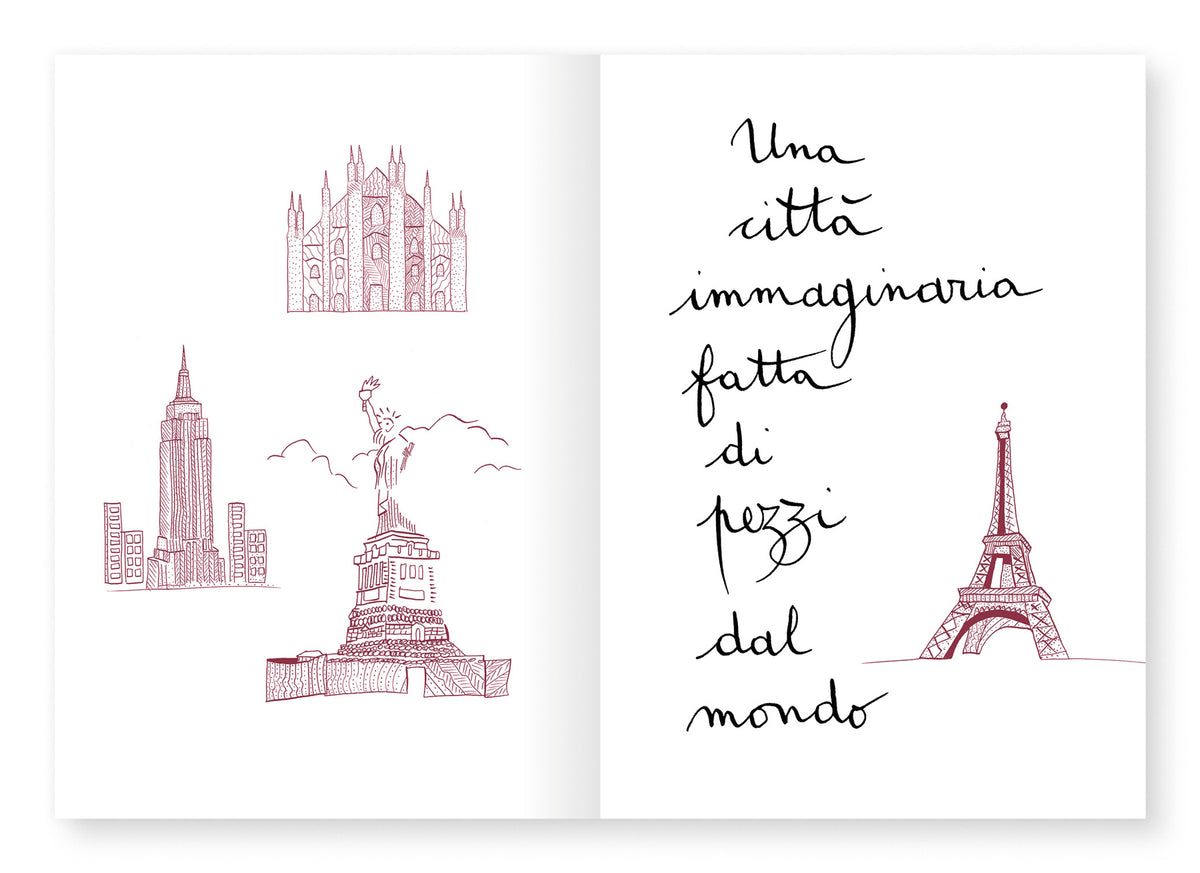 Una
città
immaginaria
fatta
di
pezzi
dal
mondo